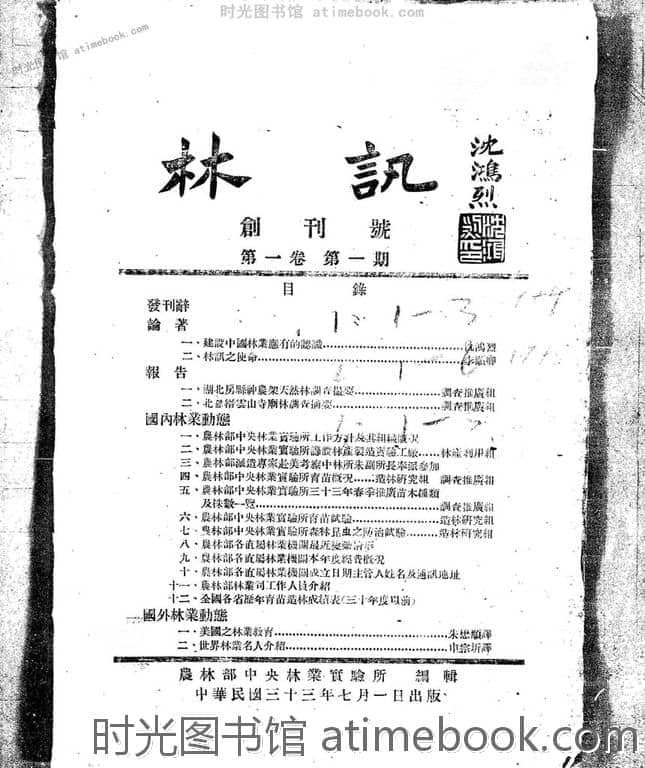 时光图书馆 atimebook.com
时光图书馆 atimebook.com
林訊
沈鴻烈
創刊號
第一卷 第一期
目錄
發刊辭
論著
一、建設中國林業應有的認識……沈鴻烈
二、林訊之使命……李順卿
報告
一、湖北房縣神農架天然林調查撮要……調查推廣組
二、北碚縉雲山寺廟林調查摘要……調查推廣組
國內林業動態
一、農林部中央林業實驗所工作方針及其組織概況
二、農林部中央林業實驗所籌設林產製造實驗工廠……林產利用組
三、農林部派遣專家赴美考察中林所朱副所長奉派參加
四、農林部中央林業實驗所育苗概況……造林研究組 調查推廣組
五、農林部中央林業實驗所三十三年春季推廣苗木種類
及株數一覽……調查推廣組
六、農林部中央林業實驗所育苗試驗……造林研究組
七、農林部中央林業實驗所森林昆虫之防治試驗……造林研究組
八、農林部各直屬林業機關最近變動情形
九、農林部各直屬林業機關本年度經費概況
十、農林部各直屬林業機關成立日期主管人姓名及通訊地址
十一、農林部林業司工作人員介紹
十二、全國各省歷年育苗造林成績表(三十年度以前)
國外林業動態
一、美國之林業教育……朱惠順譯
二、世界林業名人介紹……申宗圻譯
農林部中央林業實驗所 編輯
中華民國三十三年七月一日出版
时光图书馆 atimebook.com